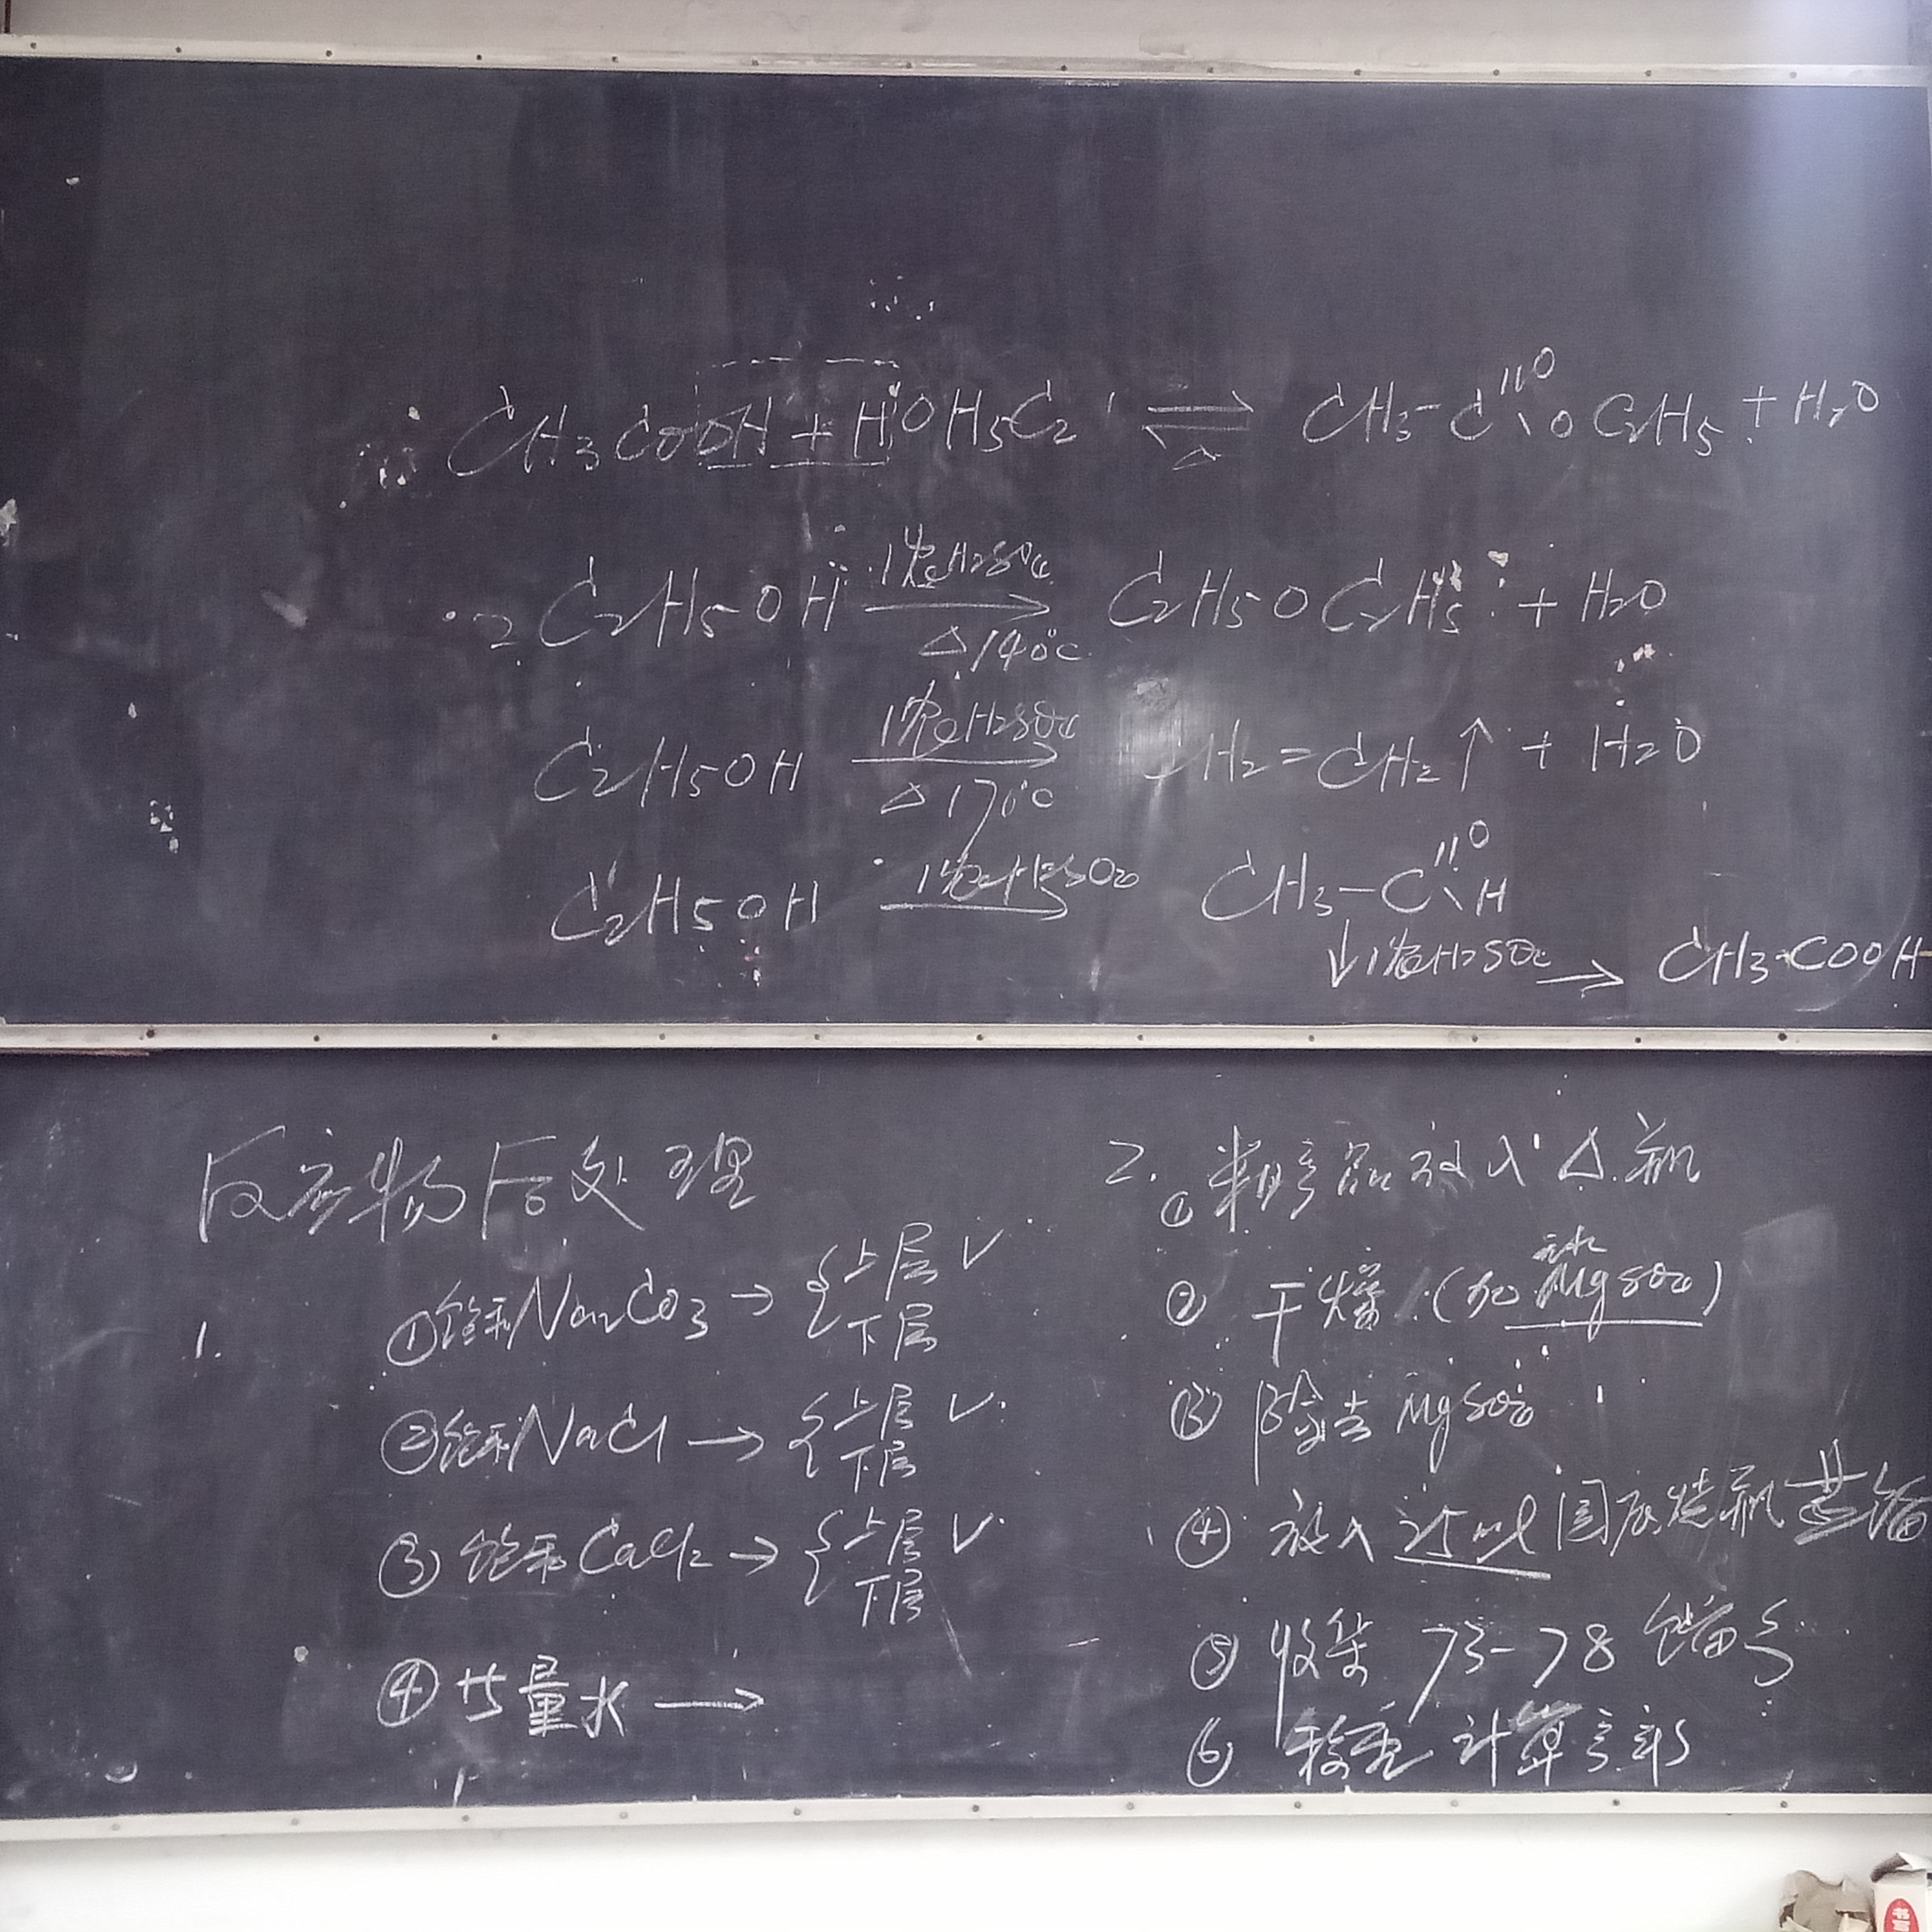 CH3COOH + HOH5C2 ⇌ CH3-C(=O)\OC2H5 + H2O
△
2C2H5OH 浓H2SO4 → △140°C C2H5OC2H5 + H2O
C2H5OH 浓H2SO4 → △170°C CH2=CH2↑ + H2O
C2H5OH 浓H2SO4 → CH3-C(=O)\H
↓浓H2SO4 → CH3-COOH
反应物后处理
1. ①饱和Na2CO3 → {上层 ✓
下层
②饱和NaCl → {上层 ✓
下层
③饱和CaCl2 → {上层 ✓
下层
④等量水 →
2. ①粗产品放入△瓶
② 干燥 (加无水MgSO4)
③ 除去MgSO4
④ 放入25ml圆底烧瓶蒸馏
⑤ 收集 73-78 馏分
⑥ 称重 计算产率
书